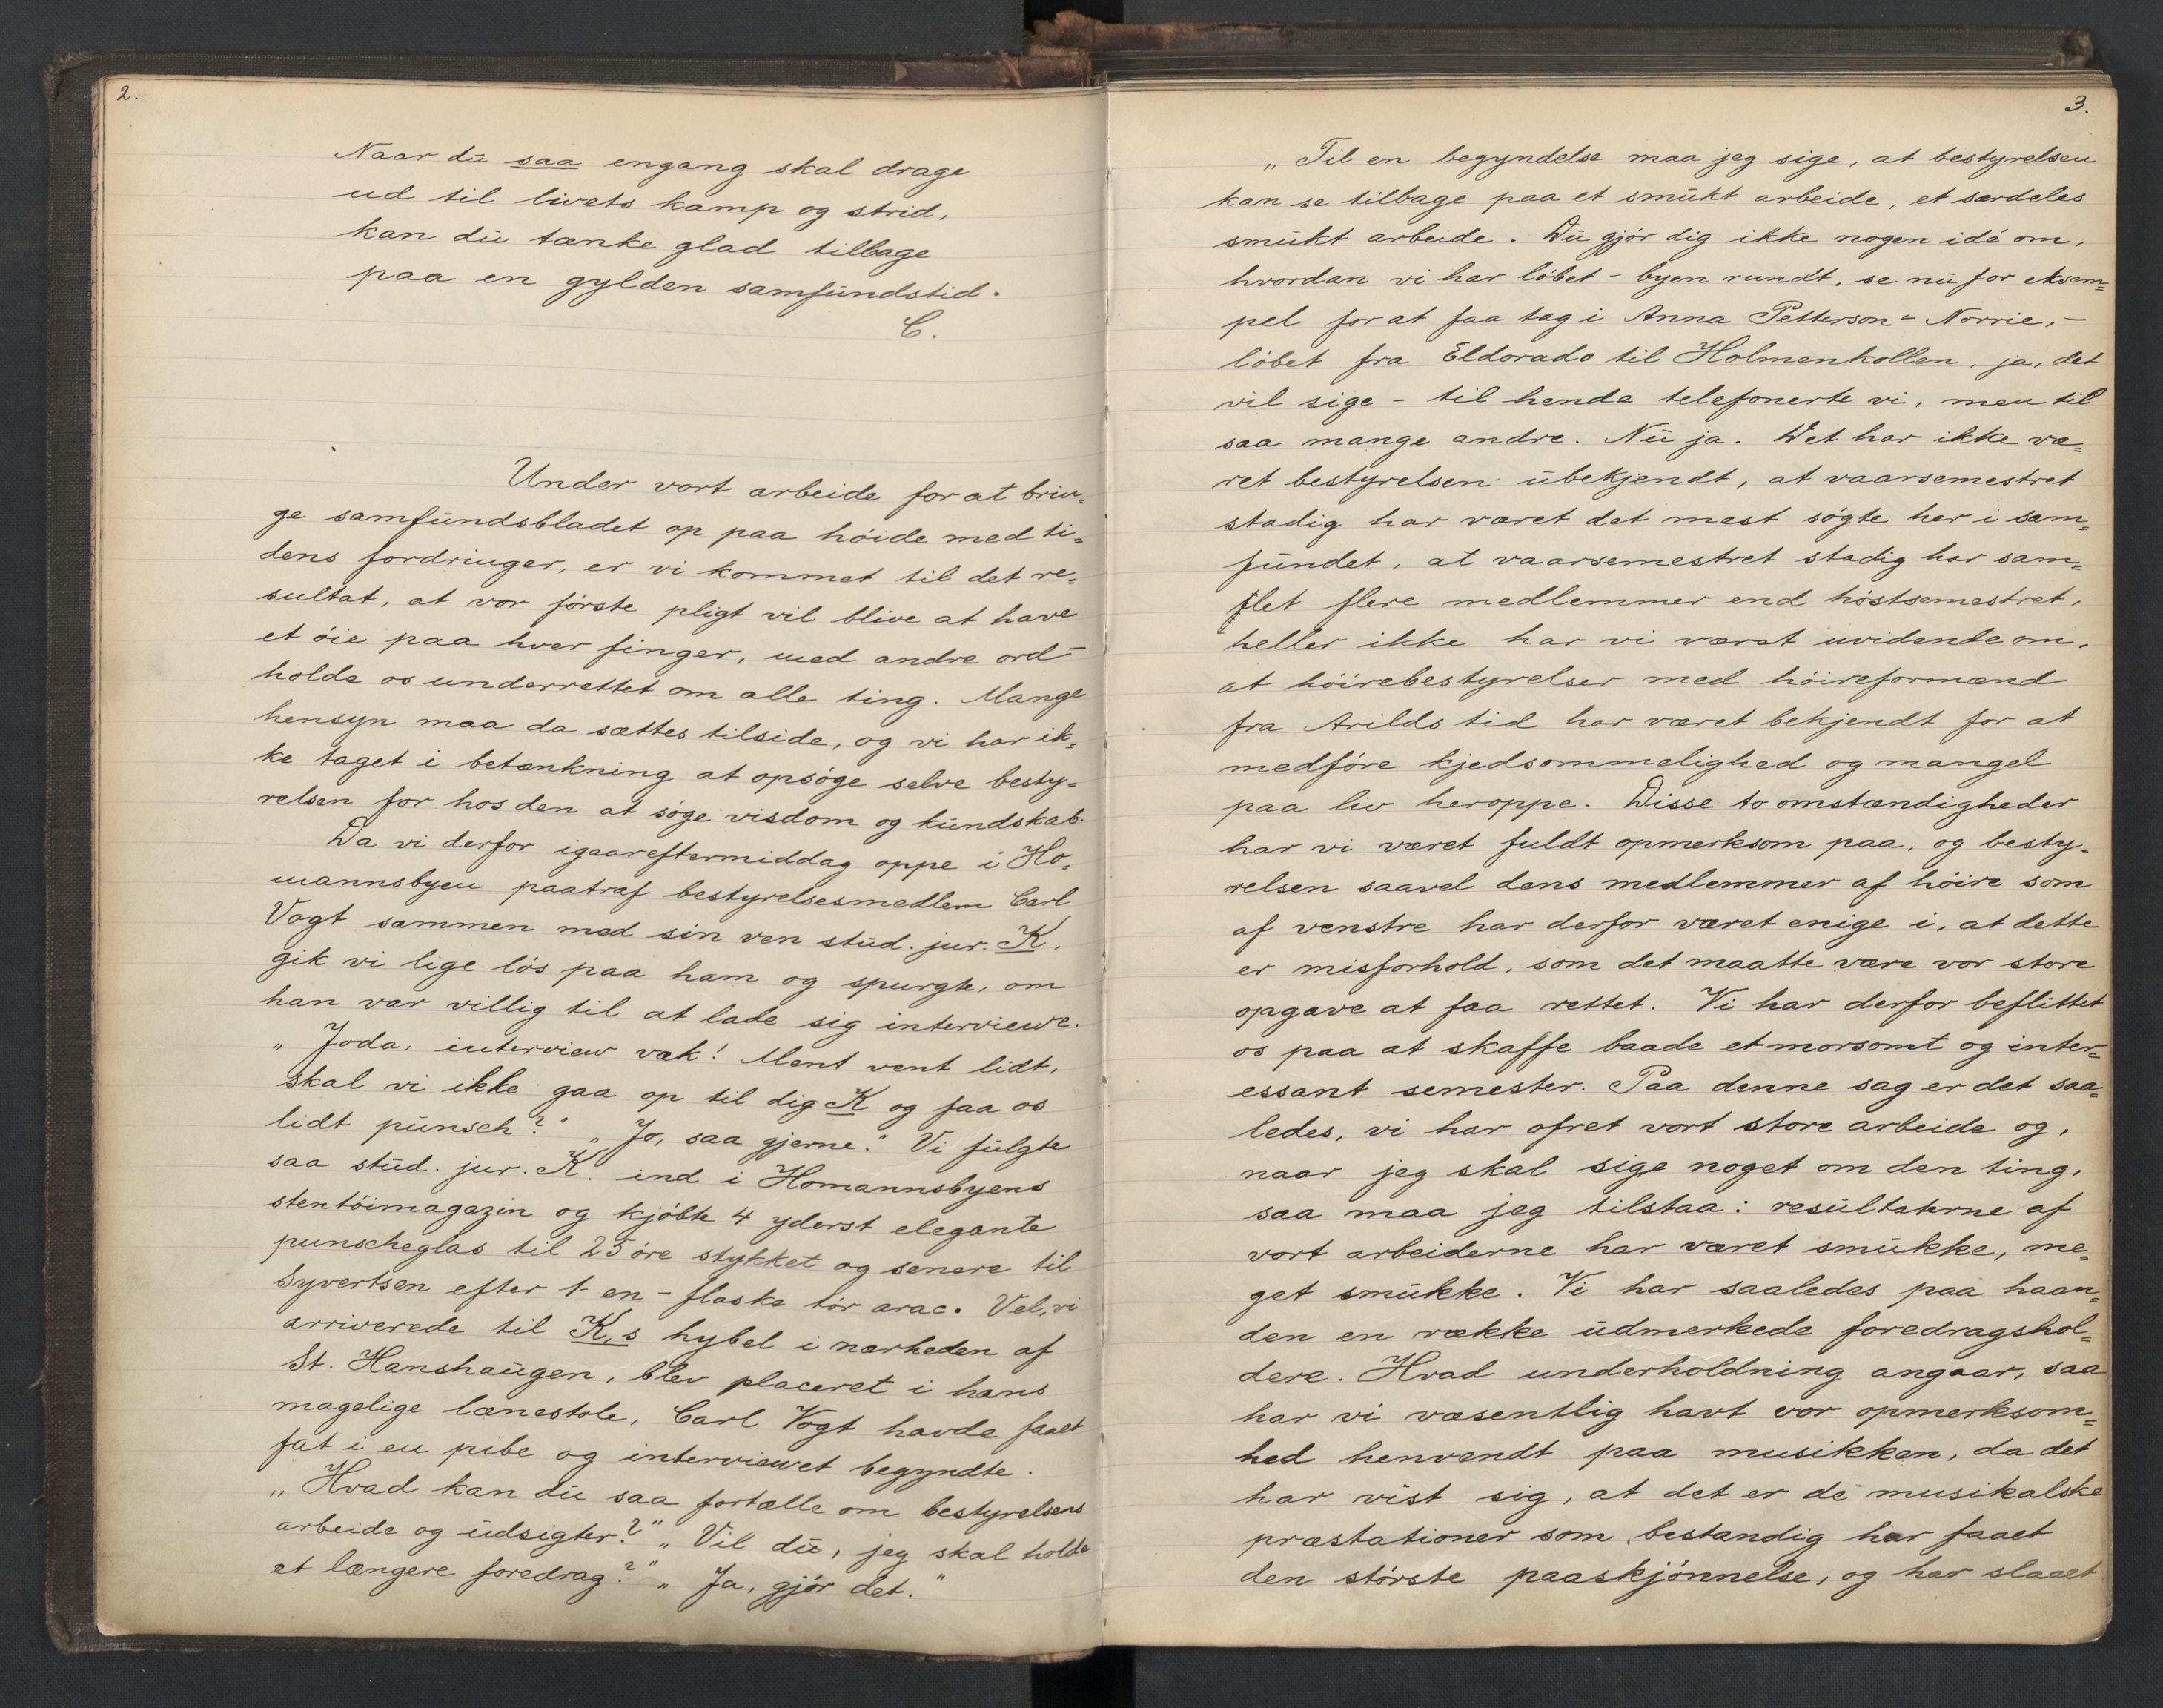 2.
Naar du saa engang skal drage
ud til livets kamp og strid,
kan du tænke glad tilbage
paa en gylden samfundstid.
C.
Under vort arbeide for at brin-
ge samfundsbladet op paa höide med ti-
dens fordringer, er vi kommet til det re-
sultat, at vor förste pligt vil blive at have
et öie paa hver finger, med andre ord -
holde os underrettet om alle ting. Mange
hensyn maa da sættes tilside, og vi har ik-
ke taget i betænkning at opsöge selve besty-
relsen for hos den at söge visdom og kundskab.
Da vi derfor igaareftermiddag oppe i Ho-
mannsbyen paatraf bestyrelsesmedlem Carl
Vogt sammen med sin ven stud. jur. K,
gik vi lige lös paa ham og spurgte, om
han var villig til at lade sig interviewe.
„Joda, interview væk! Ment vent lidt,
skal vi ikke gaa op til dig K og faa os
lidt punsch?" „Jo, saa gjerne." Vi fulgte
saa stud. jur. K. ind i Homannsbyens
stentöimagazin og kjöbte 4 yderst elegante
punscheglas til 25 öre stykket og senere til
Syvertsen efter 1 - en - flaske tör arac. Vel, vi
arriverede til K.s hybel i nærheden af
St. Hanshaugen, blev placeret i hans
magelige lænestole, Carl Vogt havde faaet
fat i en pibe og interviewet begyndte.
„Hvad kan du saa fortælle om bestyrelsens
arbeide og udsigter?" „Vil du, jeg skal holde
et længere foredrag?" „Ja, gjör det."
3.
„Til en begyndelse maa jeg sige, at bestyrelsen
kan se tilbage paa et smukt arbeide, et særdeles
smukt arbeide. Du gjör dig ikke nogen idé om,
hvordan vi har löbet - byen rundt, se nu for eksem-
pel for at faa tag i Anna Petterson - Norrie, -
löbet fra Eldorado til Holmenkollen, ja, det
vil sige - til hende telefonerte vi, men til
saa mange andre. Nu ja. Det har ikke væ-
ret bestyrelsen ubekjendt, at vaarsemestret
stadig har været det mest sögte her i sam-
fundet, at vaarsemestret stadig har sam-
let flere medlemmer end höstsemestret,
heller ikke har vi været uvidende om,
at höirebestyrelser med höireformænd
fra Arilds tid har været bekjendt for at
medföre kjedsommelighed og mangel
paa liv heroppe. Disse to omstændigheder
har vi været fuldt opmerksom paa, og besty-
relsen saavel dens medlemmer af höire som
af venstre har derfor været enige i, at dette
er misforhold, som det maatte være vor store
opgave at faa rettet. Vi har derfor beflittet
os paa at skaffe baade et morsomt og inter-
essant semester. Paa denne sag er det saa-
ledes, vi har ofret vort store arbeide og,
naar jeg skal sige noget om den ting,
saa maa jeg tilstaa: resultaterne af
vort arbeiderne har været smukke, me-
get smukke. Vi har saaledes paa haan-
den en række udmerkede foredragshol-
dere. Hvad underholdning angaar, saa
har vi væsentlig havt vor opmerksom-
hed henvendt paa musikken, da det
har vist sig, at det er de musikalske
præstationer som bestandig har faaet
den störste paaskjönnelse, og har slaaet